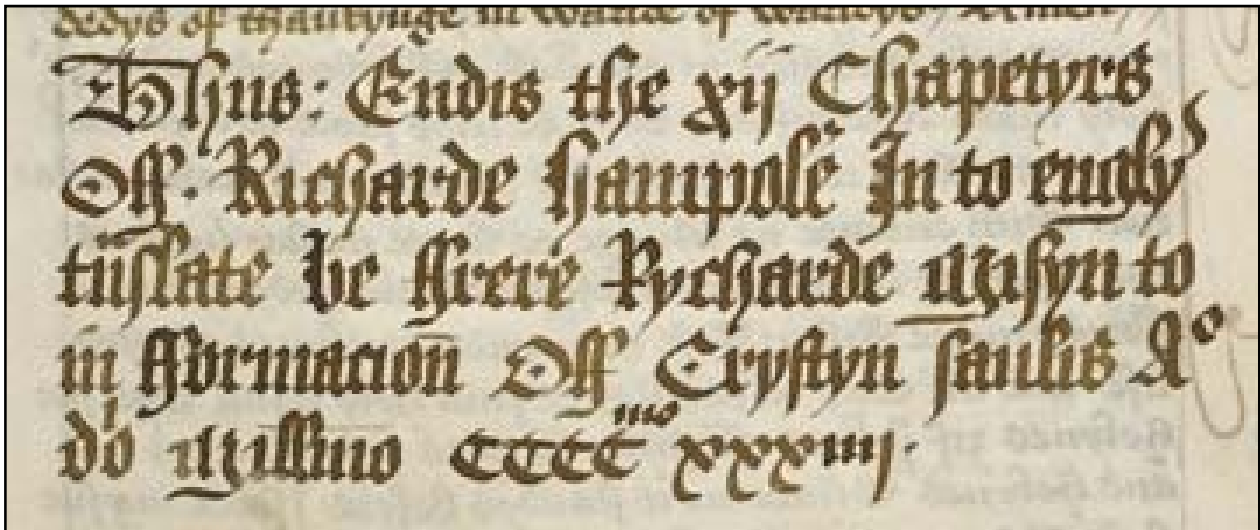 dedys of
Thus: Endis the xij Chapetyrs
Off· Richarde hampole In to englys
tnslate be ffrere Rycharde Misyn to
in fformacion Off Crystyn saulis A°
do Millimo CCCC mo xxxiiij·